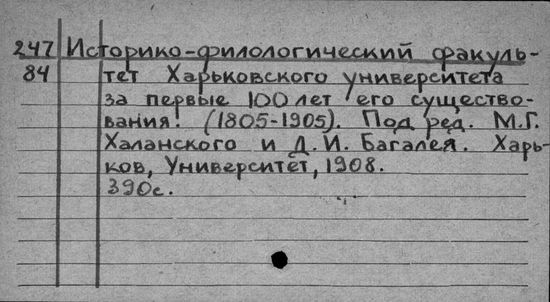 247 Историко-филологический факуль-
84 тет Харьковского университета
за первые 100 лет его существо-
вания. (1805-1905). Под ред. М.Г.
Халанского и Д.И. Багалея. Харь-
ков, Университет, 1908.
390с.